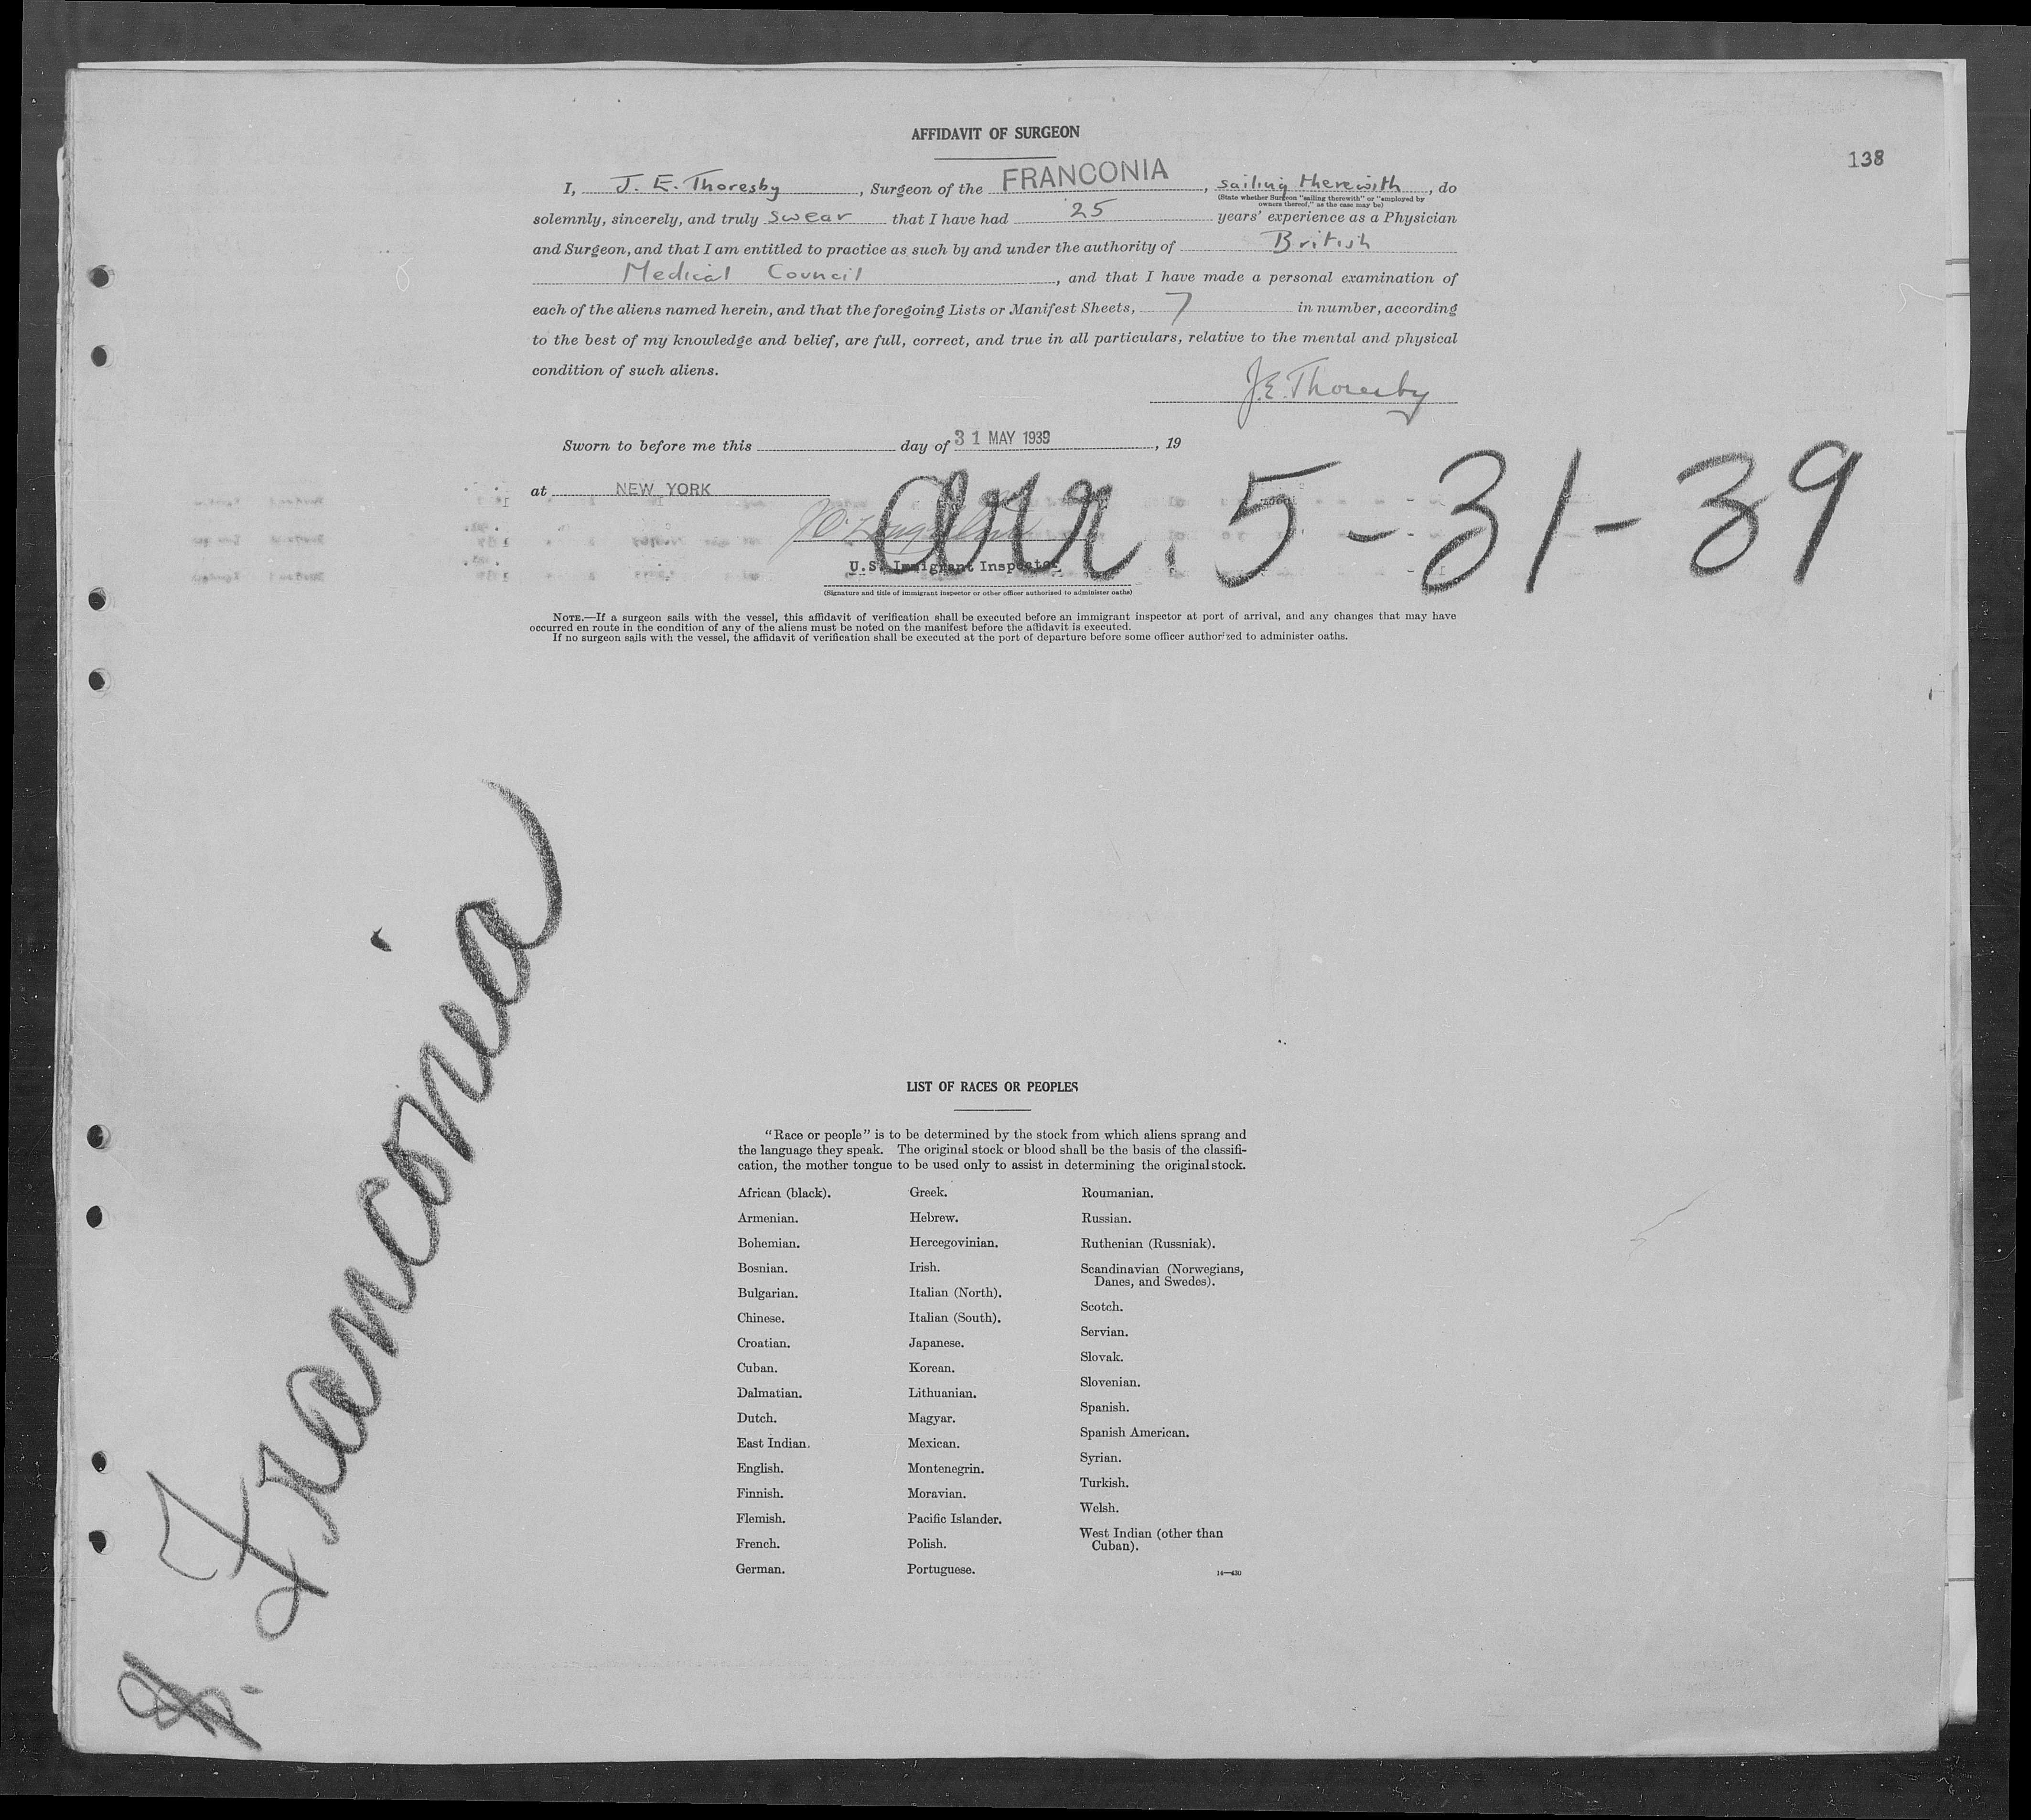 AFFIDAVIT OF SURGEON
138
I, J. E. Thoresby, Surgeon of the FRANCONIA, sailing therewith, do
(State whether Surgeon "sailing therewith" or "employed by
owners thereof," as the case may be)
solemnly, sincerely, and truly swear that I have had 25 years' experience as a Physician
and Surgeon, and that I am entitled to practice as such by and under the authority of British
Medical Council, and that I have made a personal examination of
each of the aliens named herein, and that the foregoing Lists or Manifest Sheets, 7 in number, according
to the best of my knowledge and belief, are full, correct, and true in all particulars, relative to the mental and physical
condition of such aliens.
J.E. Thoresby
Sworn to before me this day of 31 MAY 1939, 19
at NEW YORK
arr. 5-31-39
U.S. Immigrant Inspector
(Signature and title of immigrant inspector or other officer authorized to administer oaths)
NOTE.—If a surgeon sails with the vessel, this affidavit of verification shall be executed before an immigrant inspector at port of arrival, and any changes that may have
occurred en route in the condition of any of the aliens must be noted on the manifest before the affidavit is executed.
If no surgeon sails with the vessel, the affidavit of verification shall be executed at the port of departure before some officer authorized to administer oaths.
Franconia
LIST OF RACES OR PEOPLES
"Race or people" is to be determined by the stock from which aliens sprang and
the language they speak. The original stock or blood shall be the basis of the classifi-
cation, the mother tongue to be used only to assist in determining the original stock.
African (black).
Armenian.
Bohemian.
Bosnian.
Bulgarian.
Chinese.
Croatian.
Cuban.
Dalmatian.
Dutch.
East Indian.
English.
Finnish.
Flemish.
French.
German.
Greek.
Hebrew.
Hercegovinian.
Irish.
Italian (North).
Italian (South).
Japanese.
Korean.
Lithuanian.
Magyar.
Mexican.
Montenegrin.
Moravian.
Pacific Islander.
Polish.
Portuguese.
Roumanian.
Russian.
Ruthenian (Russniak).
Scandinavian (Norwegians,
Danes, and Swedes).
Scotch.
Servian.
Slovak.
Slovenian.
Spanish.
Spanish American.
Syrian.
Turkish.
Welsh.
West Indian (other than
Cuban).
14—430